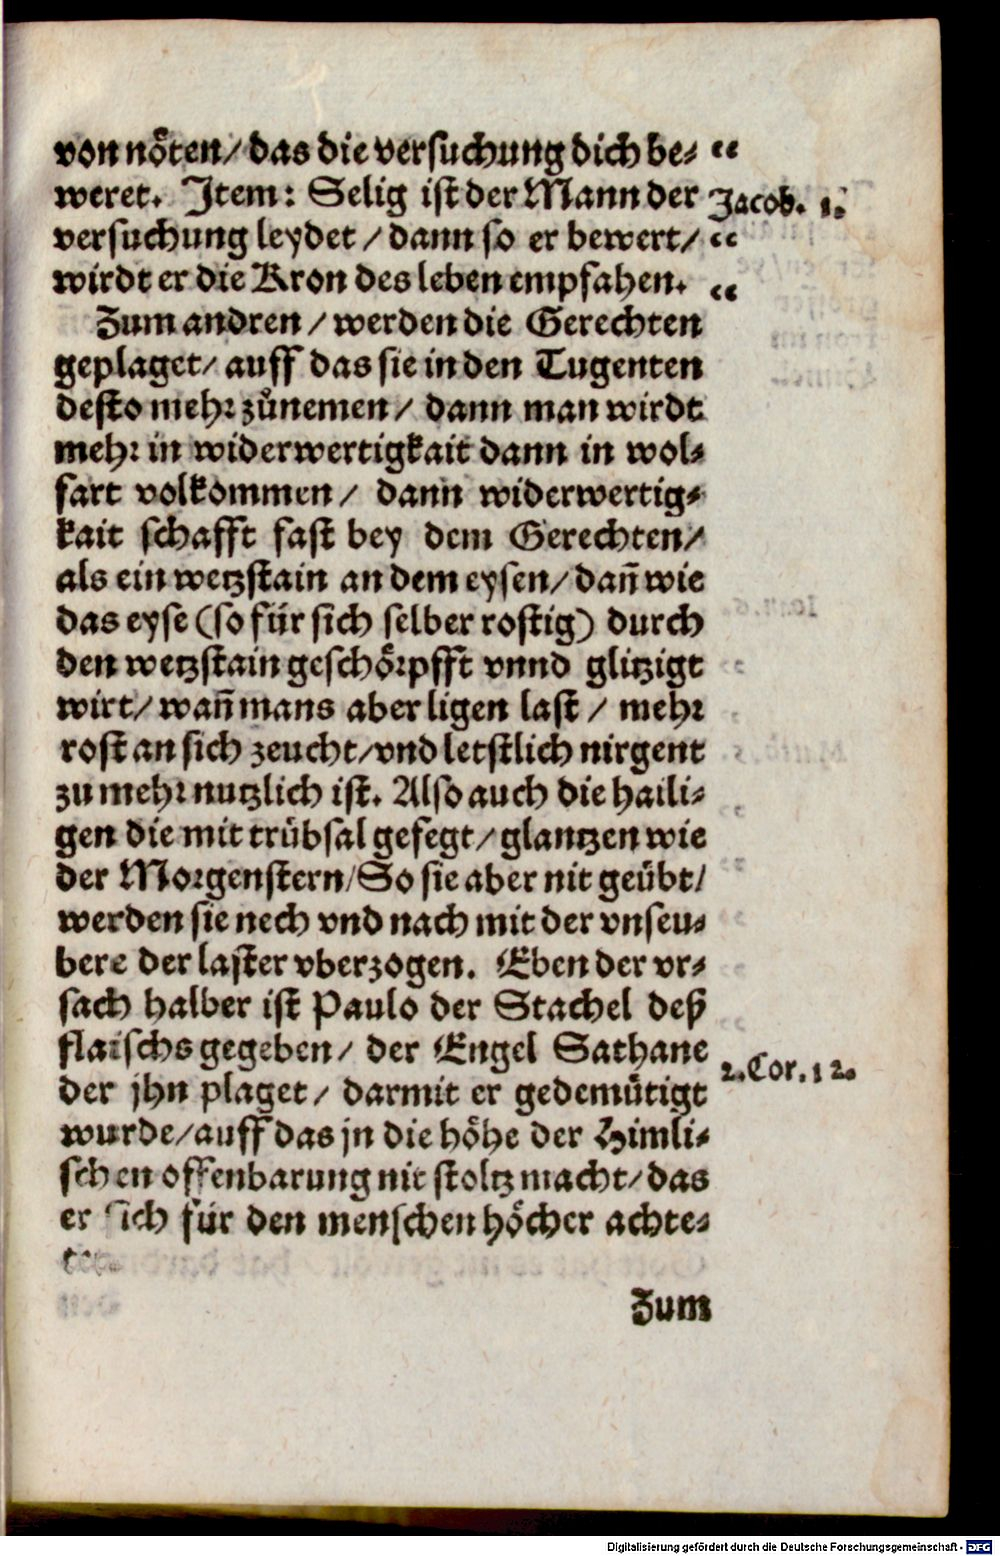 von nöten/ das die versuchung dich be- “
weret. Item: Selig ist der Mann der Jacob. 1.
versuchung leydet / dann so er bewert/ “
wirdt er die Kron des leben empfahen. “
Zum andren / werden die Gerechten
geplaget/ auff das sie in den Tugenten
desto mehr zůnemen / dann man wirdt
mehr in widerwertigkait dann in wol-
fart volkommen / dann widerwertig-
kait schafft fast bey dem Gerechten/
als ein wetzstain an dem eysen/ dañ wie
das eyse (so für sich selber rostig) durch
den wetzstain geschörpfft vnnd glitzigt
wirt/ wañ mans aber ligen last / mehr
rost an sich zeucht/vnd letstlich nirgent
zu mehr nutzlich ist. Also auch die haili-
gen die mit trübsal gefegt/ glantzen wie
der Morgenstern/ So sie aber nit geübt/
werden sie nech vnd nach mit der vnseu-
bere der laster vberzogen. Eben der vr-
sach halber ist Paulo der Stachel deß
flaischs gegeben/ der Engel Sathane
2. Cor. 12.
der jhn plaget/ darmit er gedemütigt
wurde/auff das jn die höhe der Himli-
schen offenbarung nit stoltz macht/ das
er sich für den menschen höcher achte-
Zum
Digitalisierung gefördert durch die Deutsche Forschungsgemeinschaft - DFG